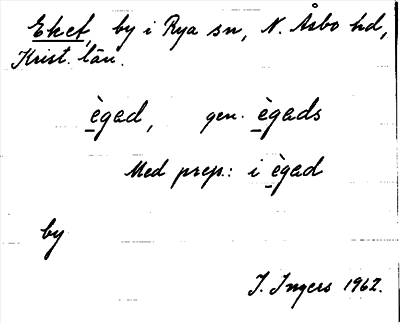 Eket, by i Rya sn, N. Åsbo hd,
Krist. län.
ègad, gen. ègads
Med prep.: i ègad
by
I. Ingers 1962.